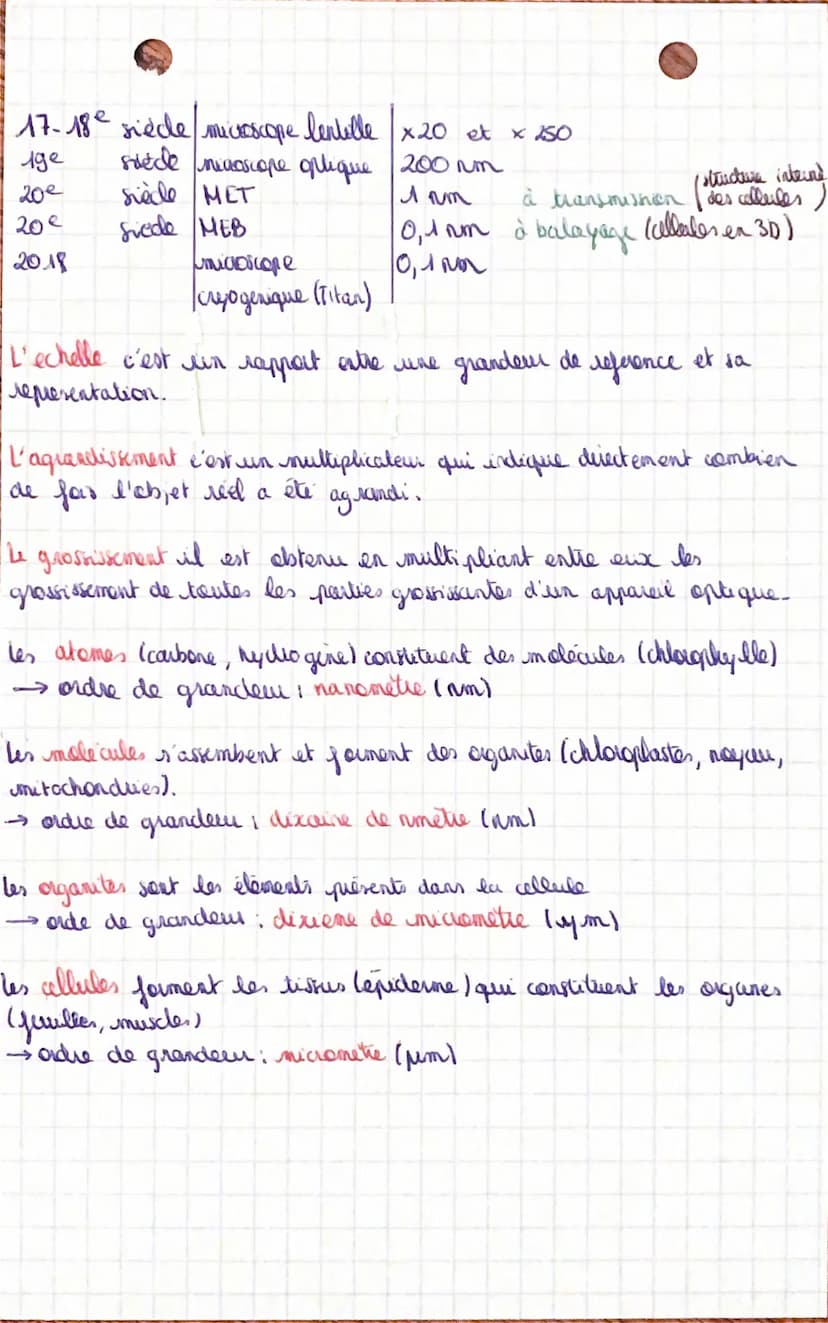 17-18e siècle | microscope lentille | x20 et x 250
19e siècle | microscope optique | 200 nm
20e siècle | MET | 1 nm à transmission (structure interne des cellules)
20e siecle | MEB | 0,1 nm à balayage (cellules en 3D)
2018 | microscope | 0,1 nm
cryogenique (Titan)
L'echelle c'est un rapport entre une grandeur de reference et sa
representation.
L'agrandissement c'est un multiplicateur qui indique directement combien
de fois l'objet réel a été agrandi.
Le grossissement il est obtenu en multipliant entre eux les
grossissement de toutes les parties grossissantes d'un appareil optique.
Les atomes (carbone, hydrogène) constituent des molécules (chlorophylle)
→ ordre de grandeur : nanomètre (nm)
Les molécules s'assembent et forment des organites (chloroplastes, noyau,
mitochondries).
→ ordre de grandeur : dixaine de nmètre (nm)
Les organites sont les éléments présents dans la cellule
→ orde de grandeur : dixieme de micromètre (µm)
Les cellules forment les tissus (épiderme) qui constituent les organes
(feuilles, muscles)
→ ordre de grandeur : micrometre (µm)